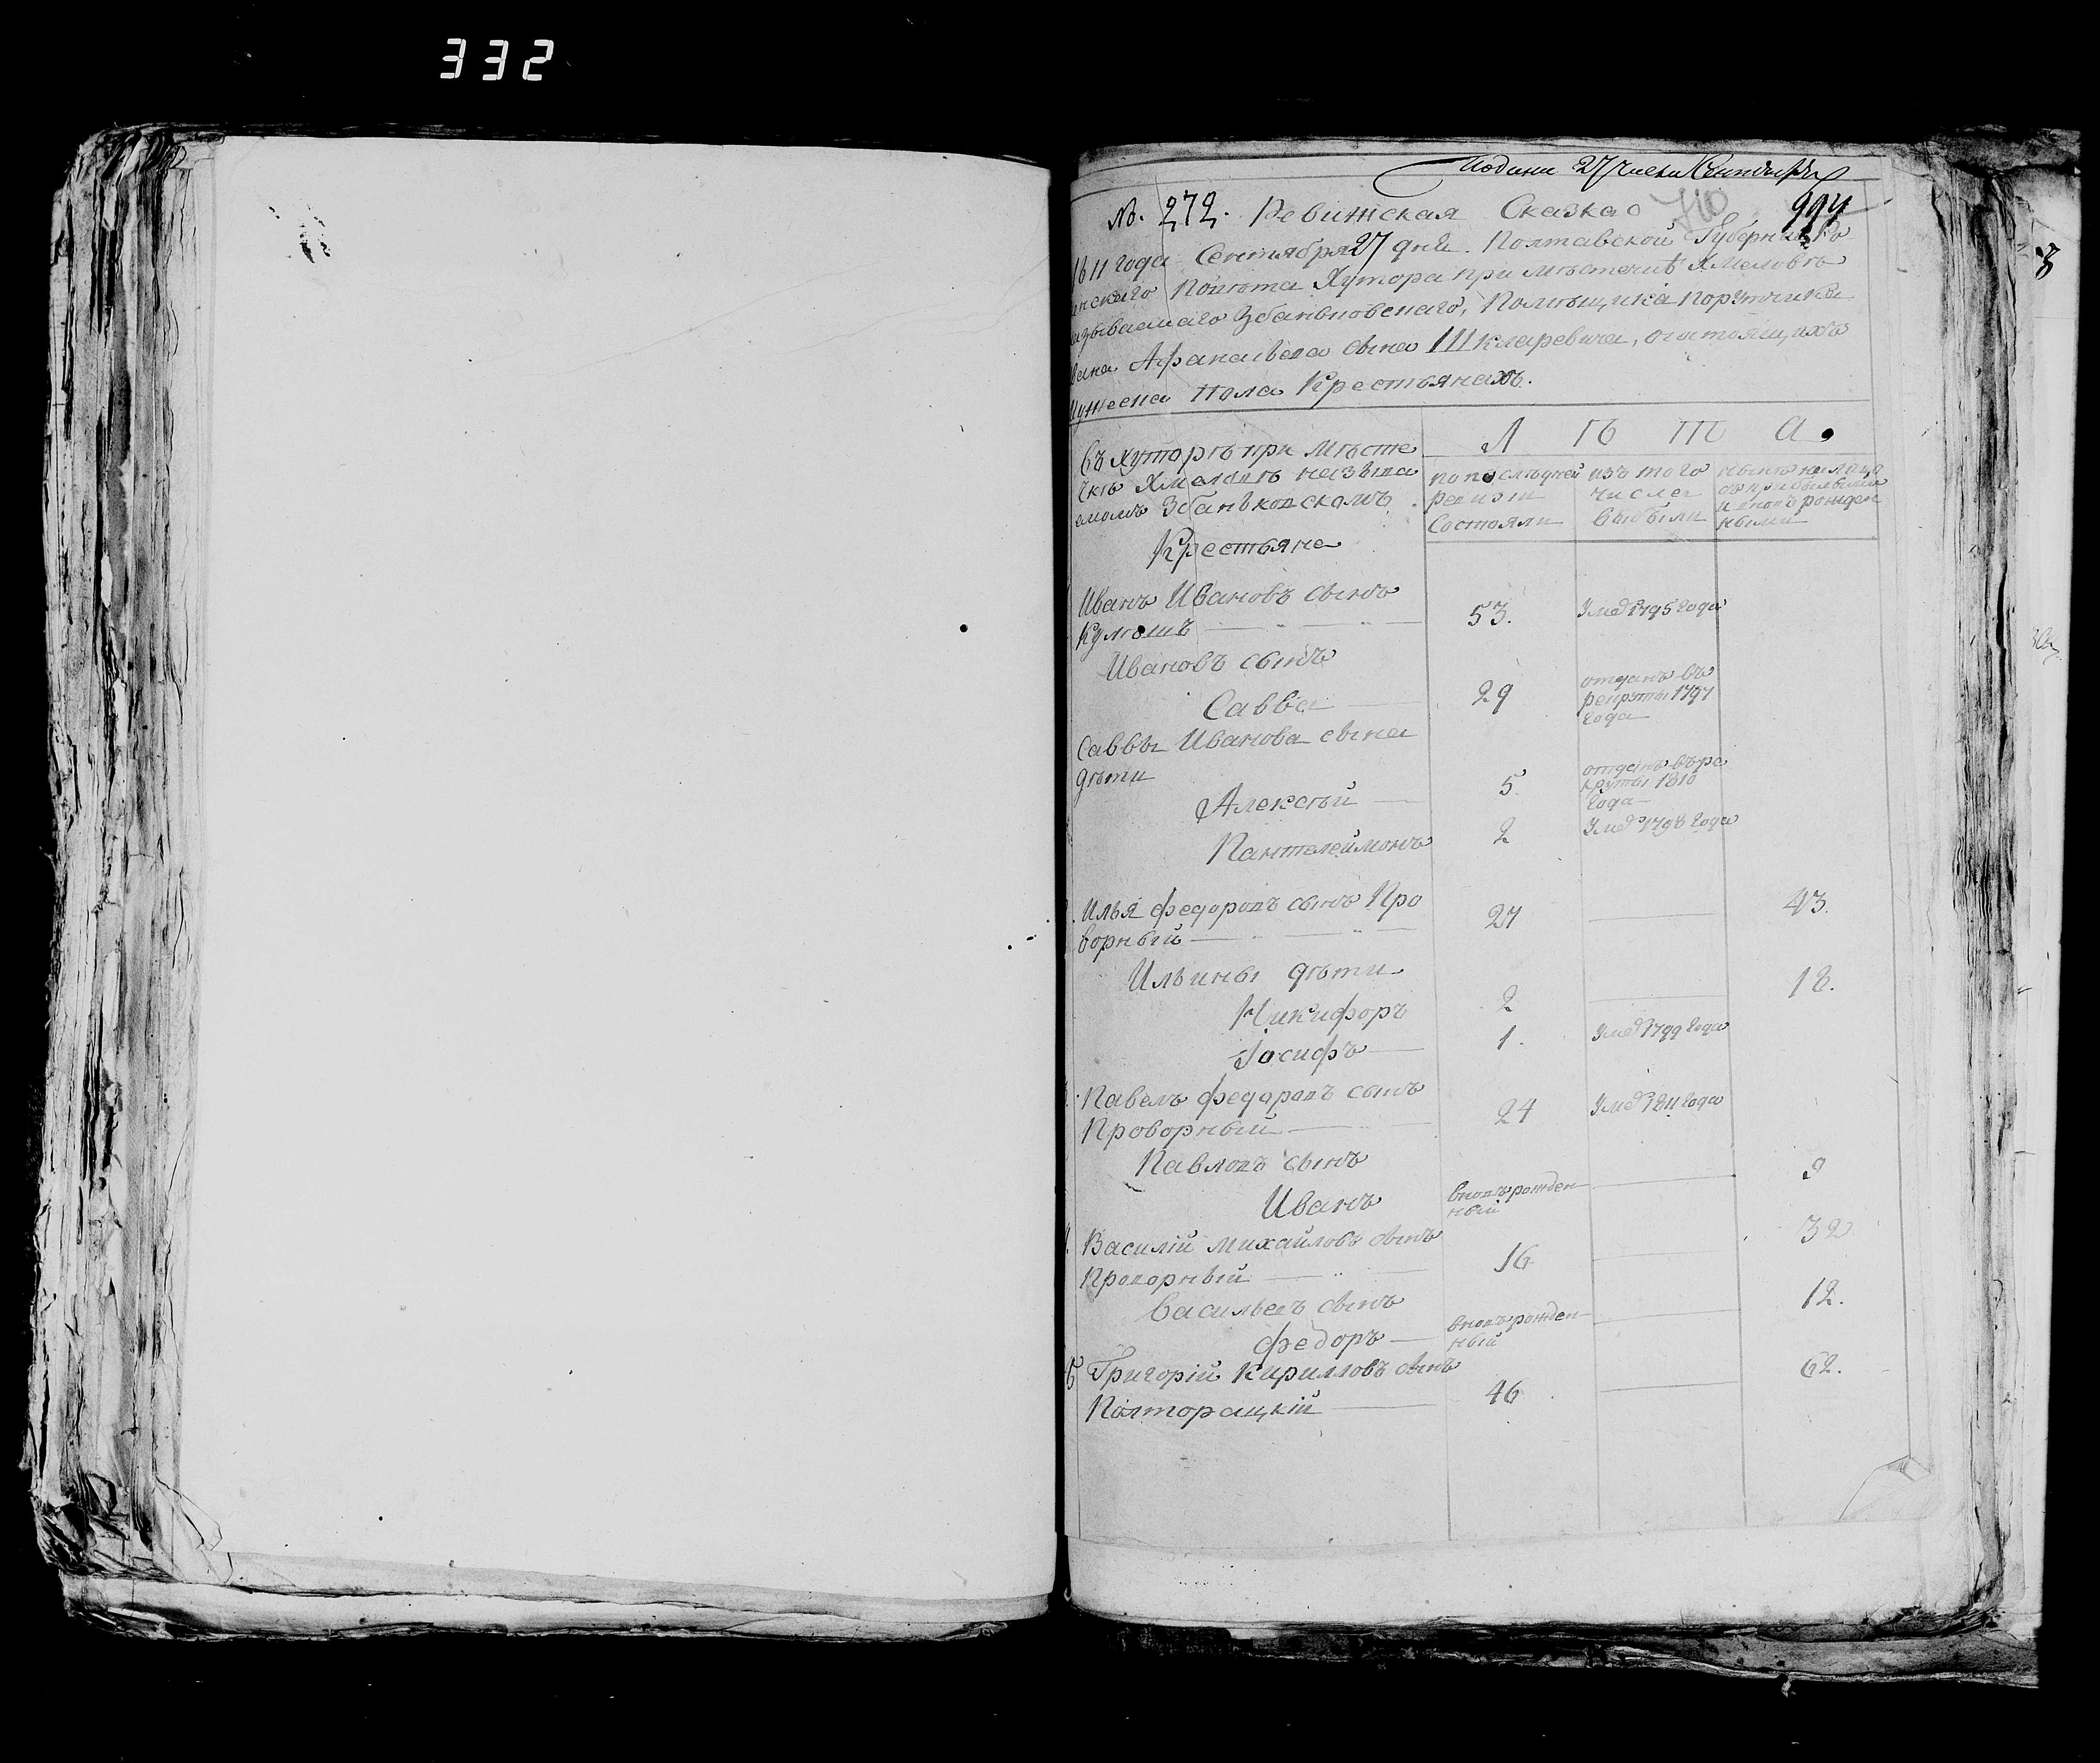 332
Подана 27 числа Сентября
№. 272. Ревижская Сказка 710 994
1811 года Сентября 27 дня. Полтавской Губернии Ро
нскаго Повѣта Хутора при мѣстечкѣ Хмеловѣ
азываемаго Збаньковскаго, Помѣщика Порутчика
вана Афанасьева сына Шкларевича, о состоящихъ
Мужеска пола Крестьянахъ.
Въ хуторѣ при мѣсте
чкѣ Хмеловѣ называ
емомъ Збаньковскомъ
Л ѣ т а.
по послѣдней ревизіи Состояли
изъ того числа выбыли
нынѣ на лицо съ прибылыми и вновь рожденными
Крестьяне
Иванъ Ивановъ сынъ
Кулюшъ 53. Умре 1795 года
Ивановъ сынъ
Савва 29 отданъ въ рекруты 1797 года
Саввы Иванова сына
дѣти
Алексѣй 5. отданъ въ рекруты 1810 года
Пантелеймонъ 2 Умре 1798 года
Илья Федоровъ сынъ Про
ворный 27 43.
Ильины дѣти
Никифоръ 2 18.
Іосифъ 1. Умре 1799 года
Павелъ Федоровъ сынъ
Проворный 24 Умре 1811 года
Павловъ сынъ
Иванъ вновь рожденный 9
Василій Михайловъ сынъ
Проворный 16 32
Васильевъ сынъ
Федоръ вновь рожденный 12.
5 Григорій Кирилловъ сынъ
Полторацкій 46 62.